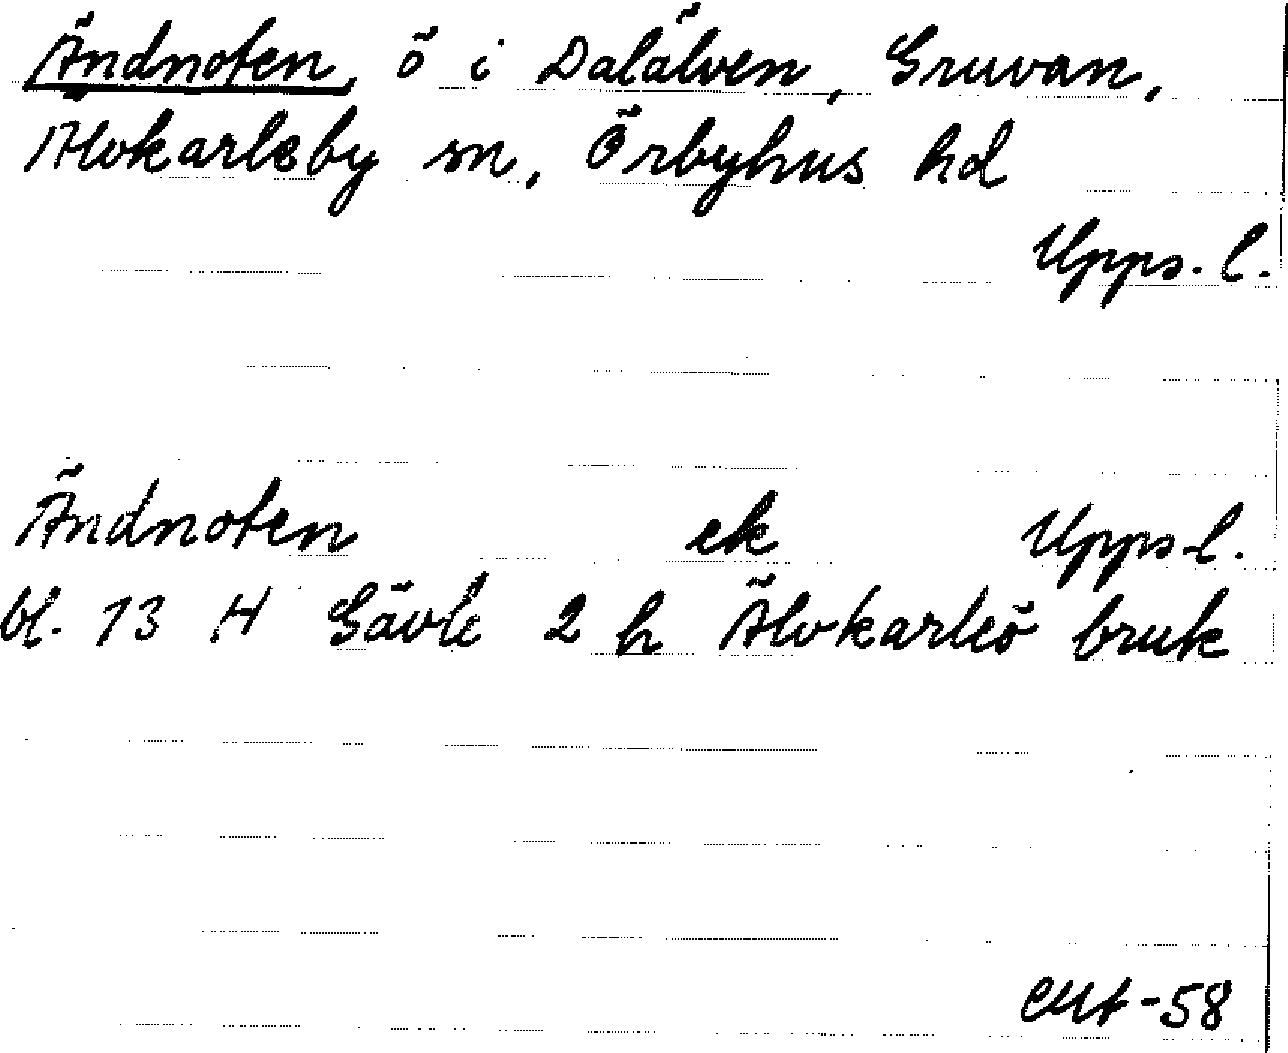 Ändnoten, ö i Dalälven, Gruvan,
Älvkarleby sn, Örbyhus hd
Upps. l.
Ändnoten ek Upps. l.
bl. 13 H Gävle 2 h Älvkarleö bruk